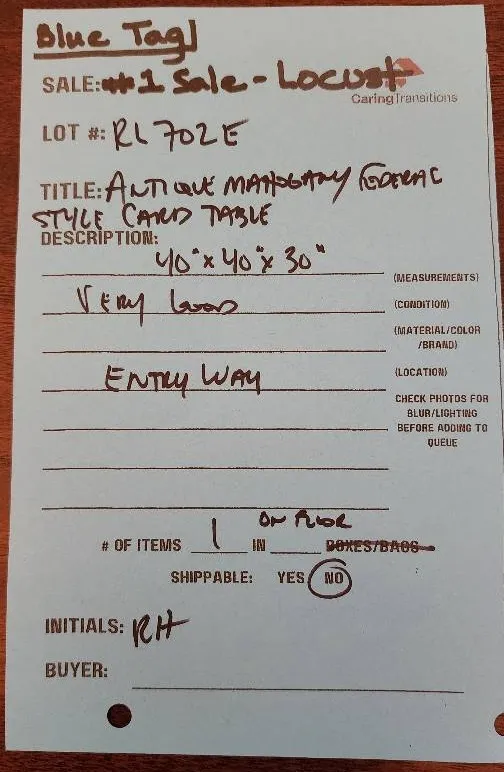 Blue Tag
SALE: #1 Sale - Locust
CaringTransitions
LOT #: RL702E
TITLE: ANTIQUE MAHOGANY FEDERAL
STYLE CARD TABLE
DESCRIPTION:
40" x 40" x 30"
(MEASUREMENTS)
VERY GOOD
(CONDITION)
(MATERIAL/COLOR
/BRAND)
ENTRY WAY
(LOCATION)
CHECK PHOTOS FOR
BLUR/LIGHTING
BEFORE ADDING TO
QUEUE
ON FLOOR
# OF ITEMS 1 IN BOXES/BAGS
SHIPPABLE: YES NO
INITIALS: RH
BUYER: